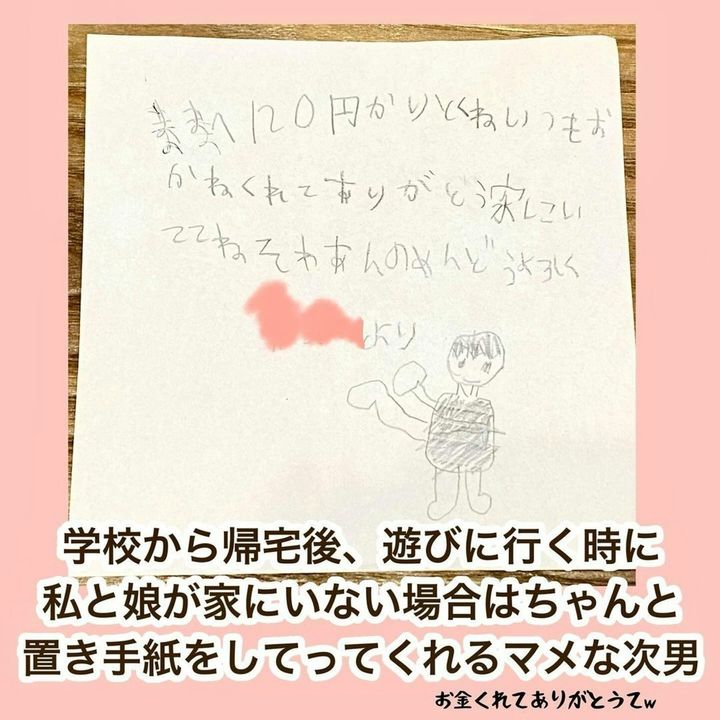 ママへ120円かりてくねいつもお
かねくれてありがどう家にい
ててね そわあんのめんどうよろしく
より
学校から帰宅後、遊びに行く時に
私と娘が家にいない場合はちゃんと
置き手紙をしてってくれるマメな次男
お金くれてありがとうてw